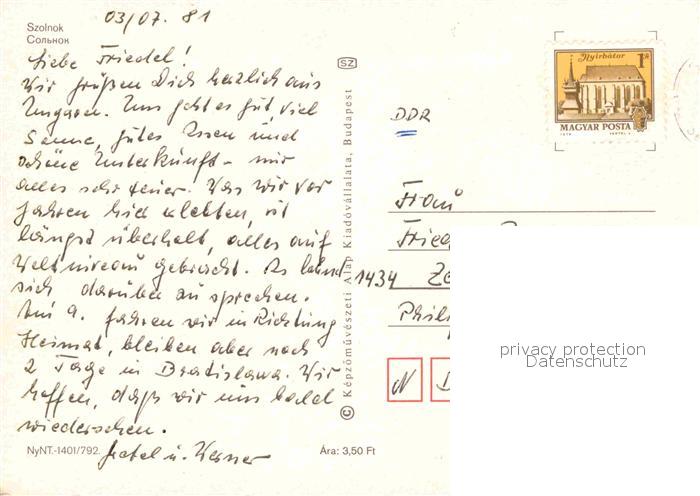 Szolnok
Сольнок
03/07. 81
Liebe Friedel!
Wir grüßen Dich herzlich aus
Ungarn. Uns geht es gut, viel
Sonne, gutes Essen und
schöne Unterkünft - nur
alles sehr teuer. Was wir vor
Jahren hier erlebten, ist
längst überholt, alles auf
Weltniveau gebracht. Es lohnt
sich darüber zu sprechen.
Am 9. fahren wir in Richtung
Heimat, bleiben aber noch
2 Tage in Bratislawa. Wir
hoffen, daß wir uns bald
wiedersehen.
Gretel u. Werner
NyNT.-1401/792.
Ára: 3,50 Ft
SZ
© Képzőművészeti Alap Kiadóvállalata, Budapest
Nyírbátor
1 Ft
MAGYAR POSTA
DDR
Frau
Fried
1434 Ze
Phili
N D
privacy protection
Datenschutz